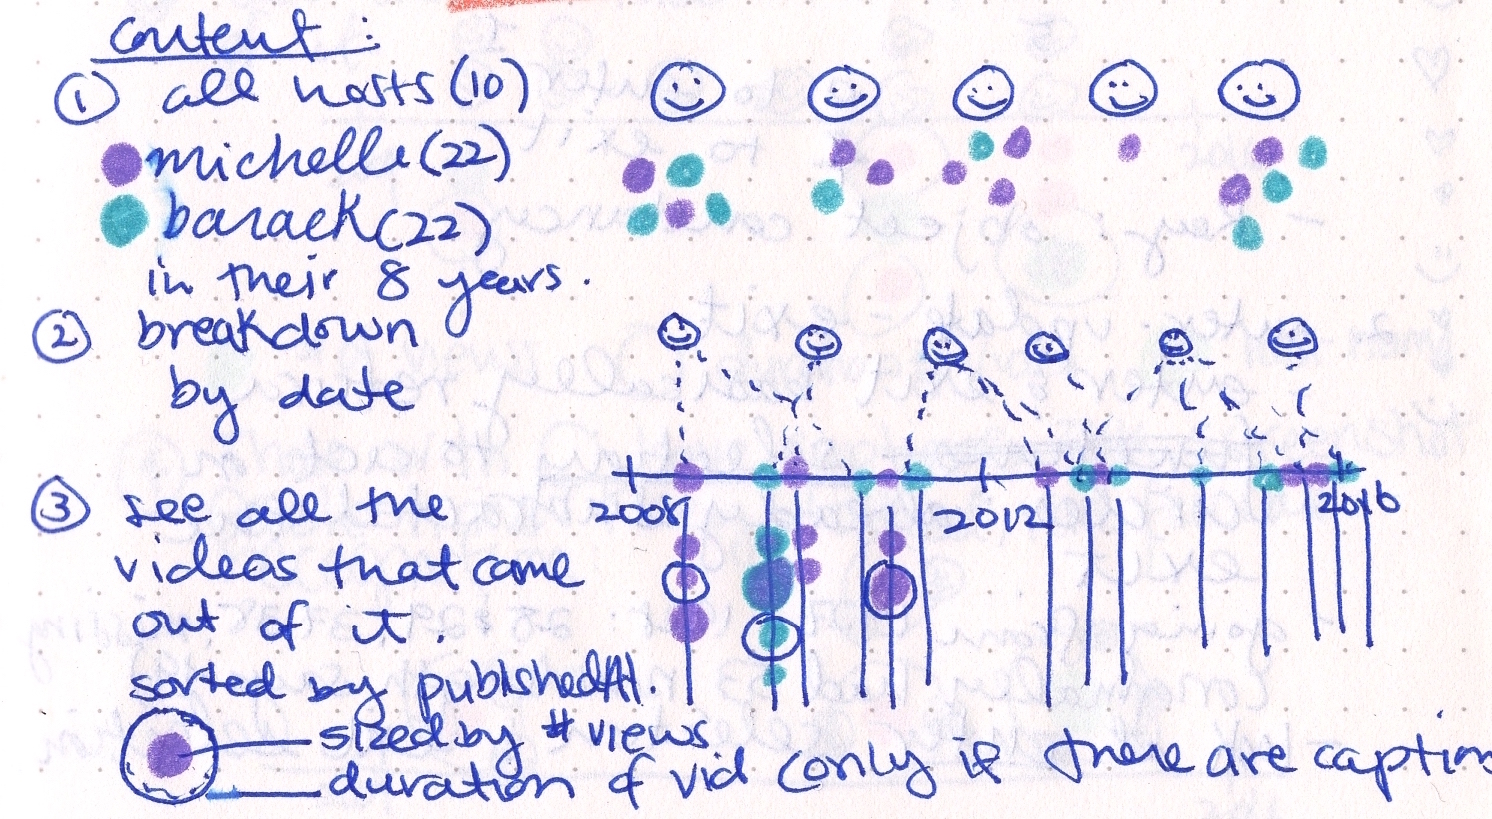 content:
① all hosts (10)
michelle (22)
barack (22)
in their 8 years.
② breakdown
by date
③ see all the
videos that came
out of it.
sorted by publishedAt.
2008 2012 2016
sized by # views
duration of vid (only if there are caption